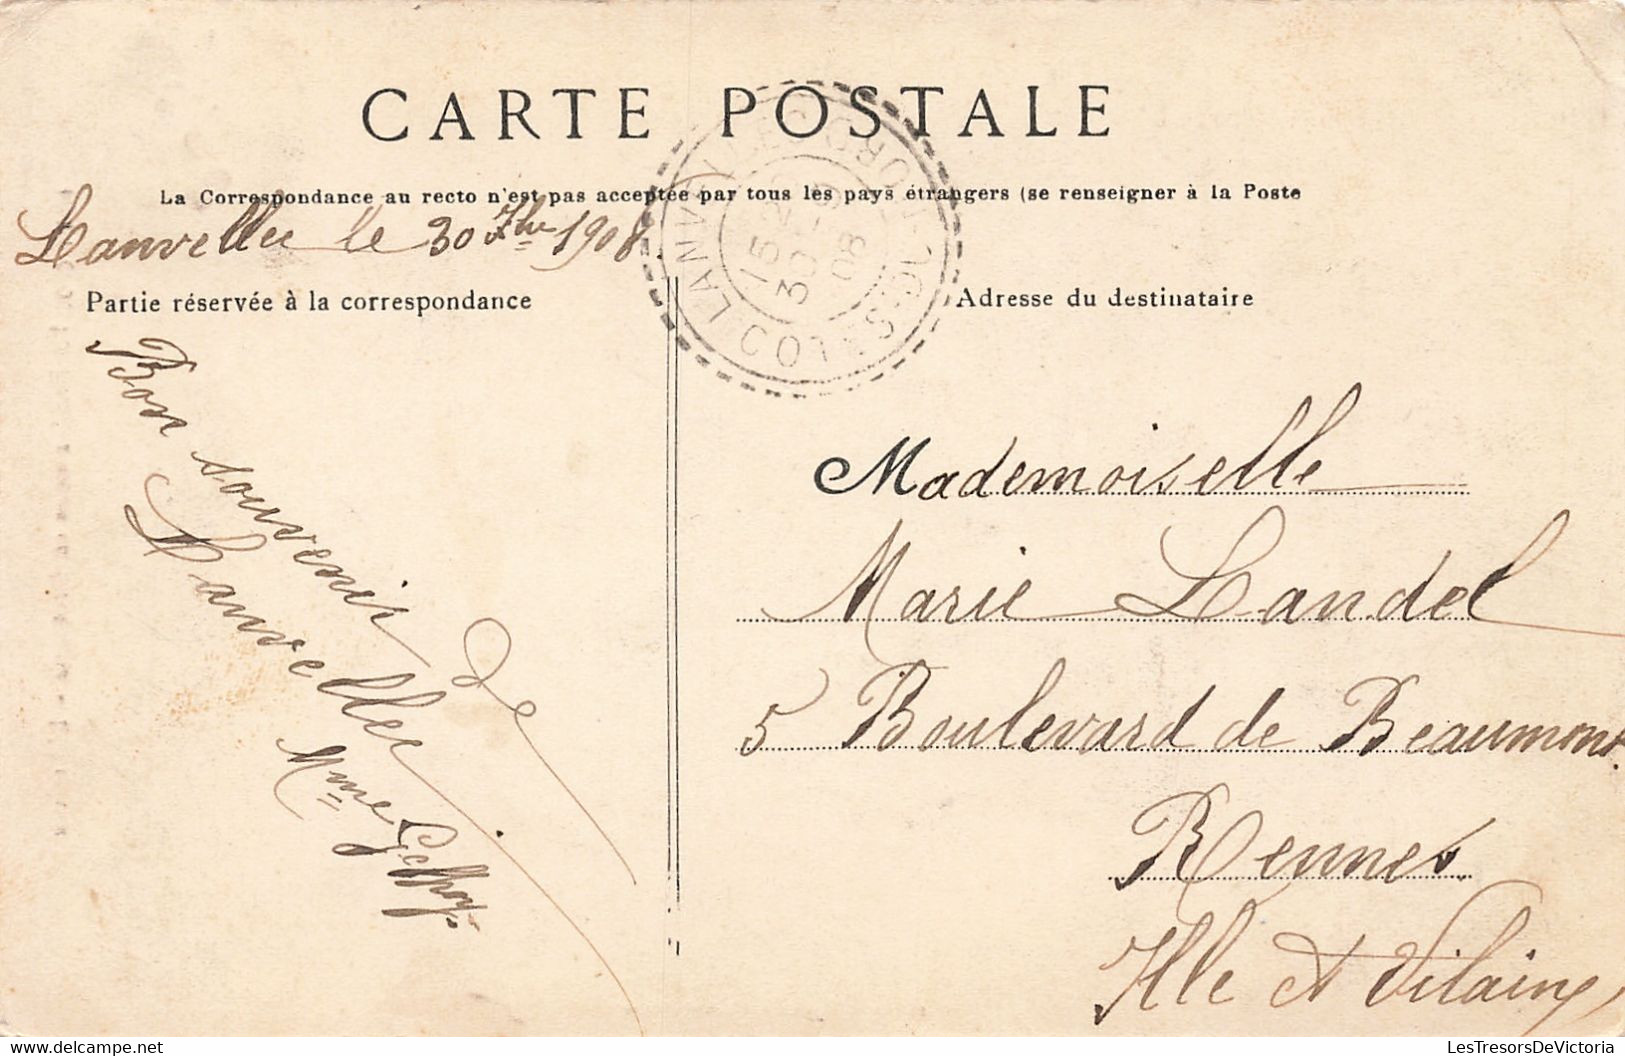 CARTE POSTALE
La Correspondance au recto n'est pas acceptée par tous les pays étrangers (se renseigner à la Poste
Lanvellec le 30 7bre 1908.
Partie réservée à la correspondance
Adresse du destinataire
LANVELLEC
15
30
08
COTES-DU-NORD
Bon souvenir de
Lanvellec
Mme Geffroy.
Mademoiselle
Marie Landel
5 Boulevard de Beaumont.
Rennes.
Ille et Vilaine
LesTresorsDeVictoria